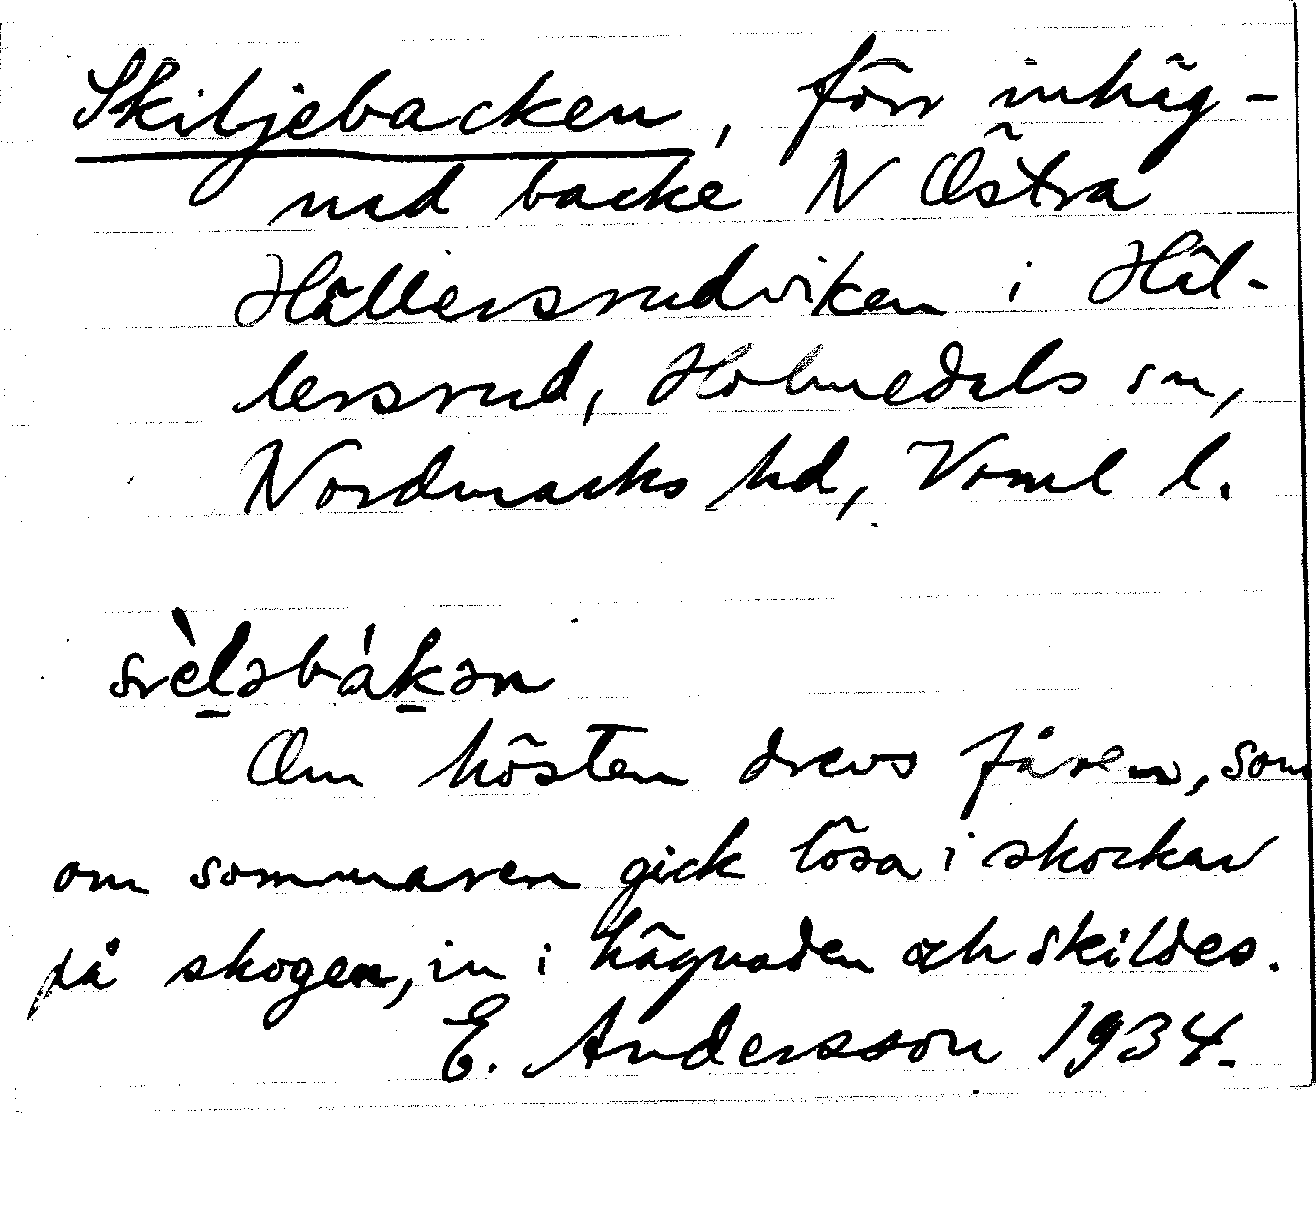 Skiljebacken, förr inhäg-
nad backe N Östra
Hällersrudviken i Häl-
lersrud, Holmedals sn,
Nordmarks hd, Vrml l.
Om hösten drevs fåren, som
om sommaren gick lösa i skockar
på skogen, in i hägnaden och skildes.
E. Andersson 1934.